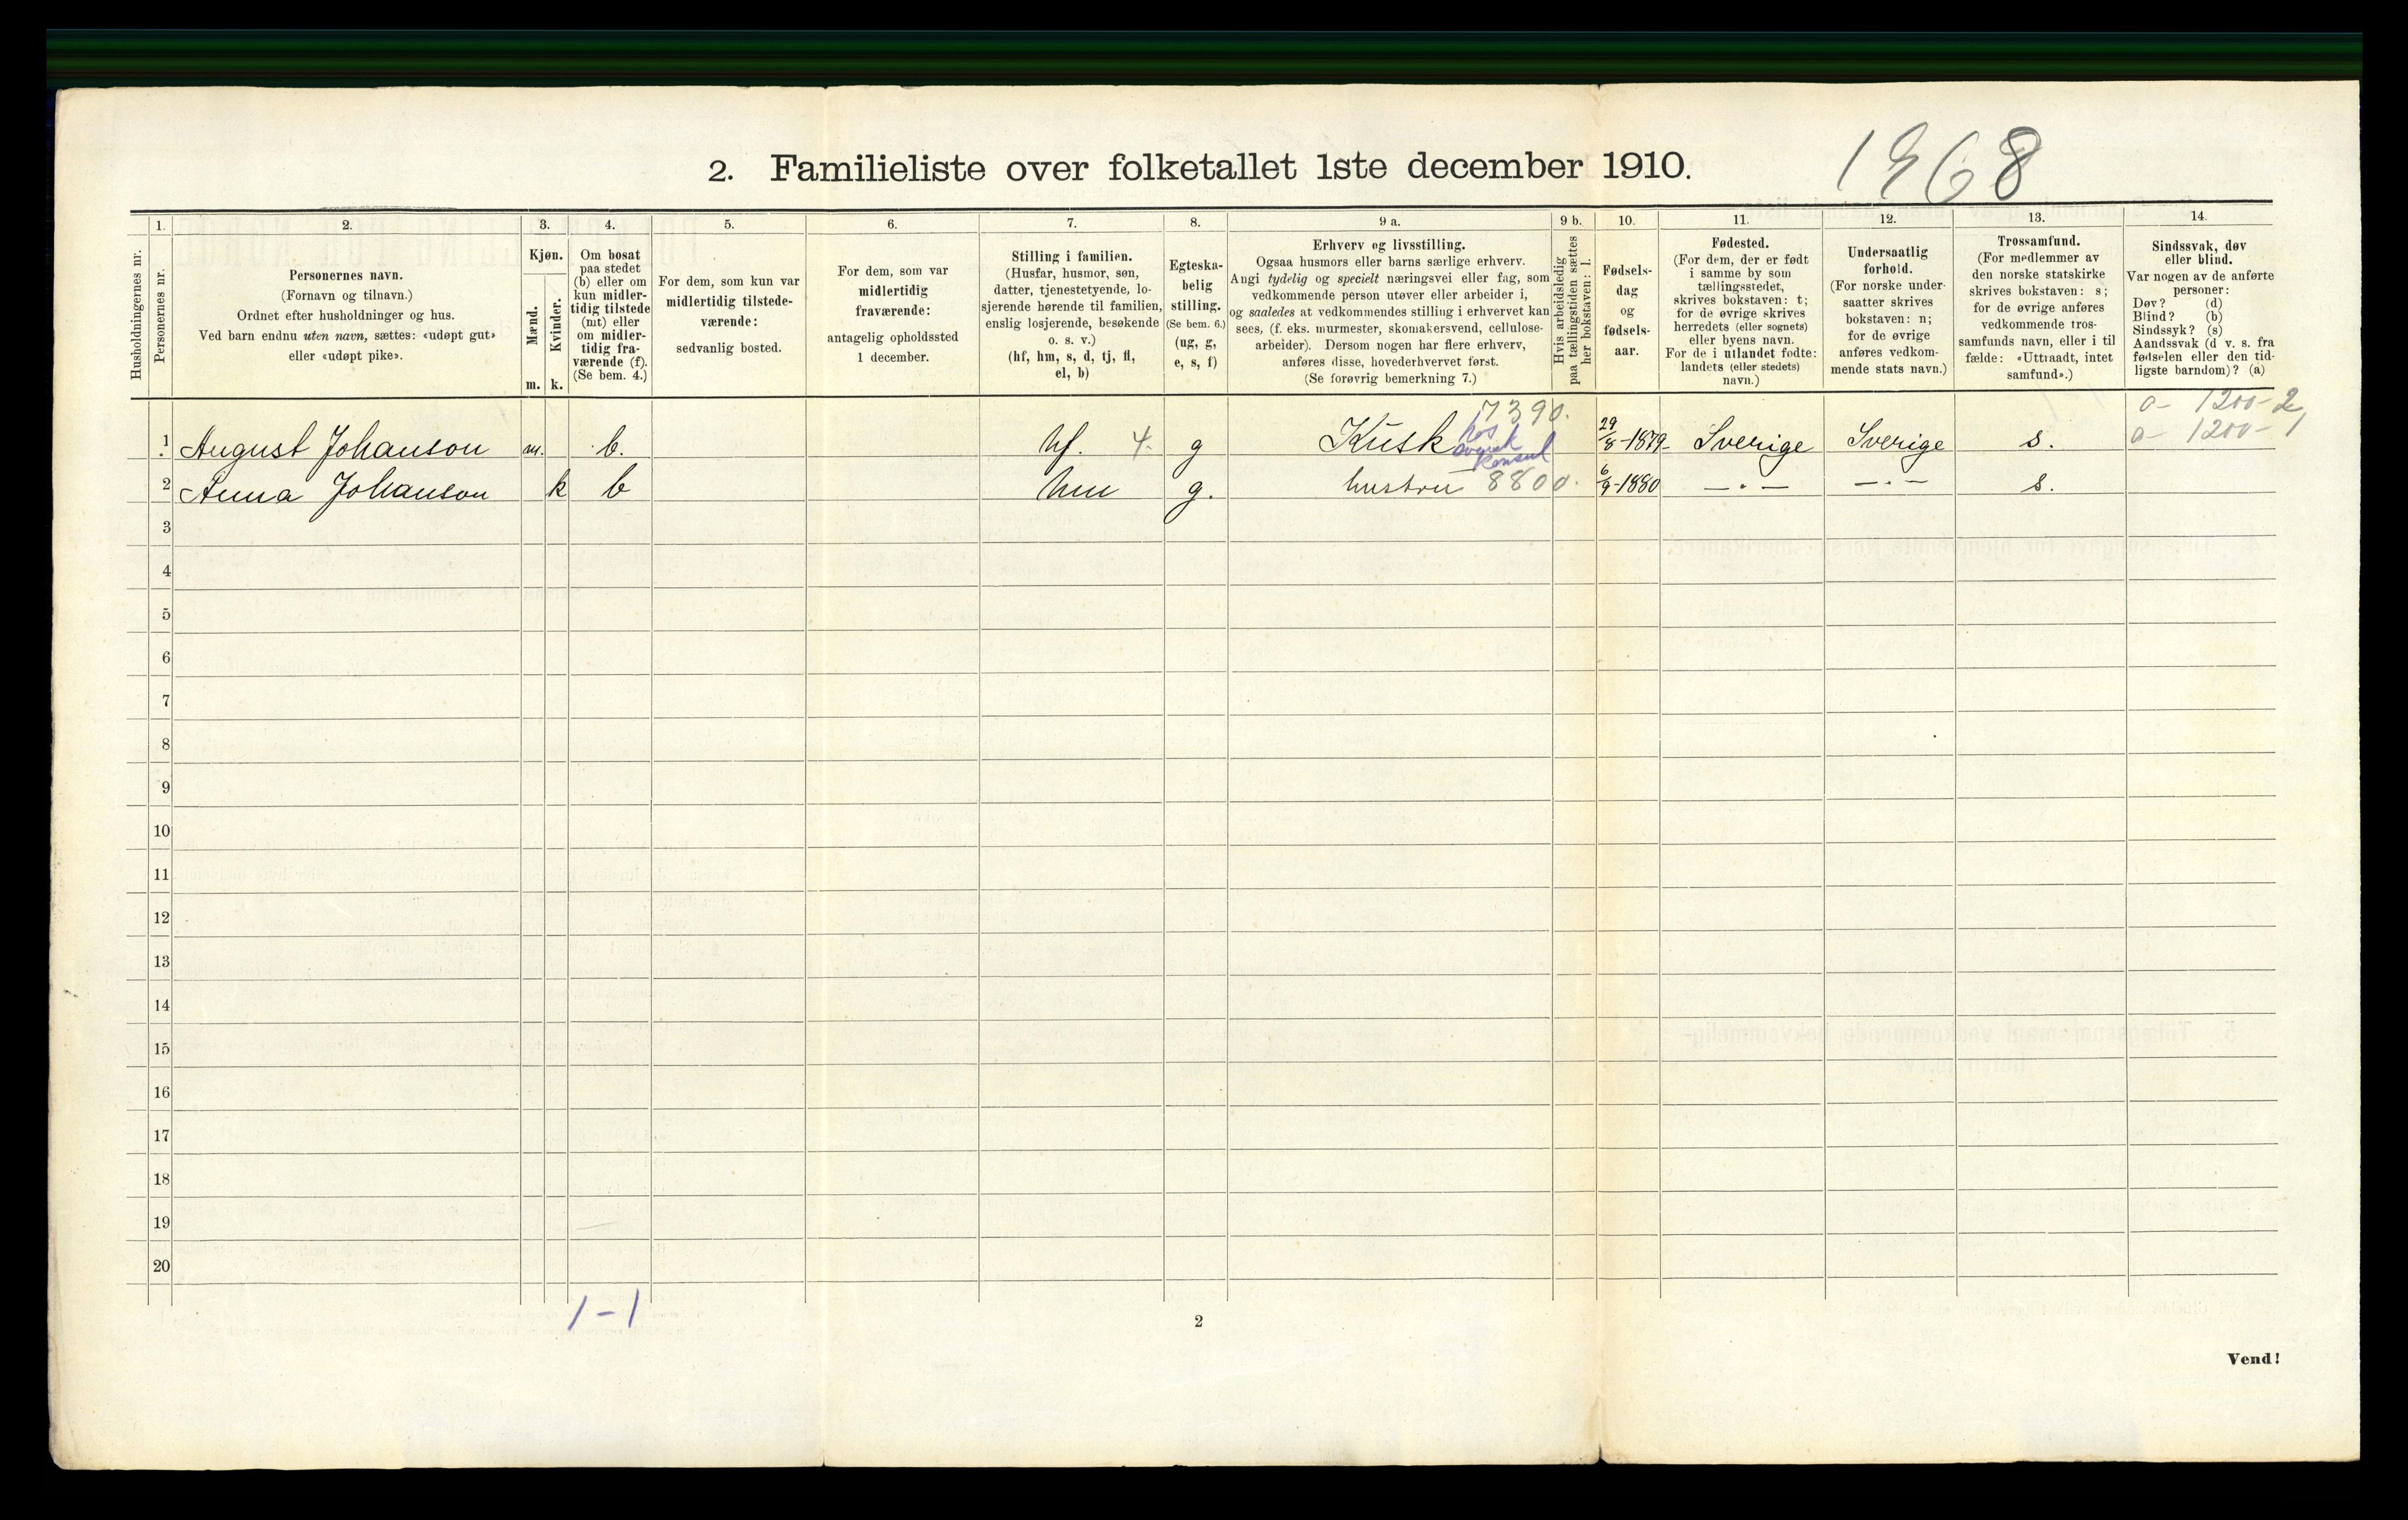 1968
2. Familieliste over folketallet 1ste december 1910.
1. 2. 3. 4. 5. 6. 7. 8. 9 a. 9 b. 10. 11. 12. 13. 14.
Husholdningernes nr.
Personernes nr.
Personernes navn.
(Fornavn og tilnavn.)
Ordnet efter husholdninger og hus.
Ved barn endnu uten navn, sættes: «udøpt gut»
eller «udøpt pike».
Kjøn.
Mænd.
Kvinder.
m. k.
Om bosat
paa stedet
(b) eller om
kun midler-
tidig tilstede
(mt) eller
om midler-
tidig fra-
værende (f).
(Se bem. 4.)
For dem, som kun var
midlertidig tilstede-
værende:
sedvanlig bosted.
For dem, som var
midlertidig
fraværende:
antagelig opholdssted
1 december.
Stilling i familien.
(Husfar, husmor, søn,
datter, tjenestetyende, lo-
sjerende hørende til familien,
enslig losjerende, besøkende
o. s. v.)
(hf, hm, s, d, tj, fl,
el, b)
Egteska-
belig
stilling.
(Se bem. 6.)
(ug, g,
e, s, f)
Erhverv og livsstilling.
Ogsaa husmors eller barns særlige erhverv.
Angi tydelig og specielt næringsvei eller fag, som
vedkommende person utøver eller arbeider i,
og saaledes at vedkommendes stilling i erhvervet kan
sees, (f. eks. murmester, skomakersvend, cellulose-
arbeider). Dersom nogen har flere erhverv,
anføres disse, hovederhvervet først.
(Se forøvrig bemerkning 7.)
Hvis arbeidsledig
paa tællingstiden sættes
her bokstaven: l.
Fødsels-
dag
og
fødsels-
aar.
Fødested.
(For dem, der er født
i samme by som
tællingsstedet,
skrives bokstaven: t;
for de øvrige skrives
herredets (eller sognets)
eller byens navn.
For de i utlandet fødte:
landets (eller stedets)
navn.)
Undersaatlig
forhold.
(For norske under-
saatter skrives
bokstaven: n;
for de øvrige
anføres vedkom-
mende stats navn.)
Trossamfund.
(For medlemmer av
den norske statskirke
skrives bokstaven: s;
for de øvrige anføres
vedkommende tros-
samfunds navn, eller i til
fælde: «Uttraadt, intet
samfund».)
Sindssvak, døv
eller blind.
Var nogen av de anførte
personer:
Døv? (d)
Blind? (b)
Sindssyk? (s)
Aandssvak (d v. s. fra
fødselen eller den tid-
ligste barndom)? (a)
7390. a- 1200-2
1 August Johanson m. b. hf. 4. g Kusk hos svensk Konsul 29/8-1879 Sverige Sverige s. a- 1200-1
2 Anna Johanson k b hm g. hustru 8800. 6/9-1880 —·— —·— s.
3
4
5
6
7
8
9
10
11
12
13
14
15
16
17
18
19
20
1-1
2
Vend!